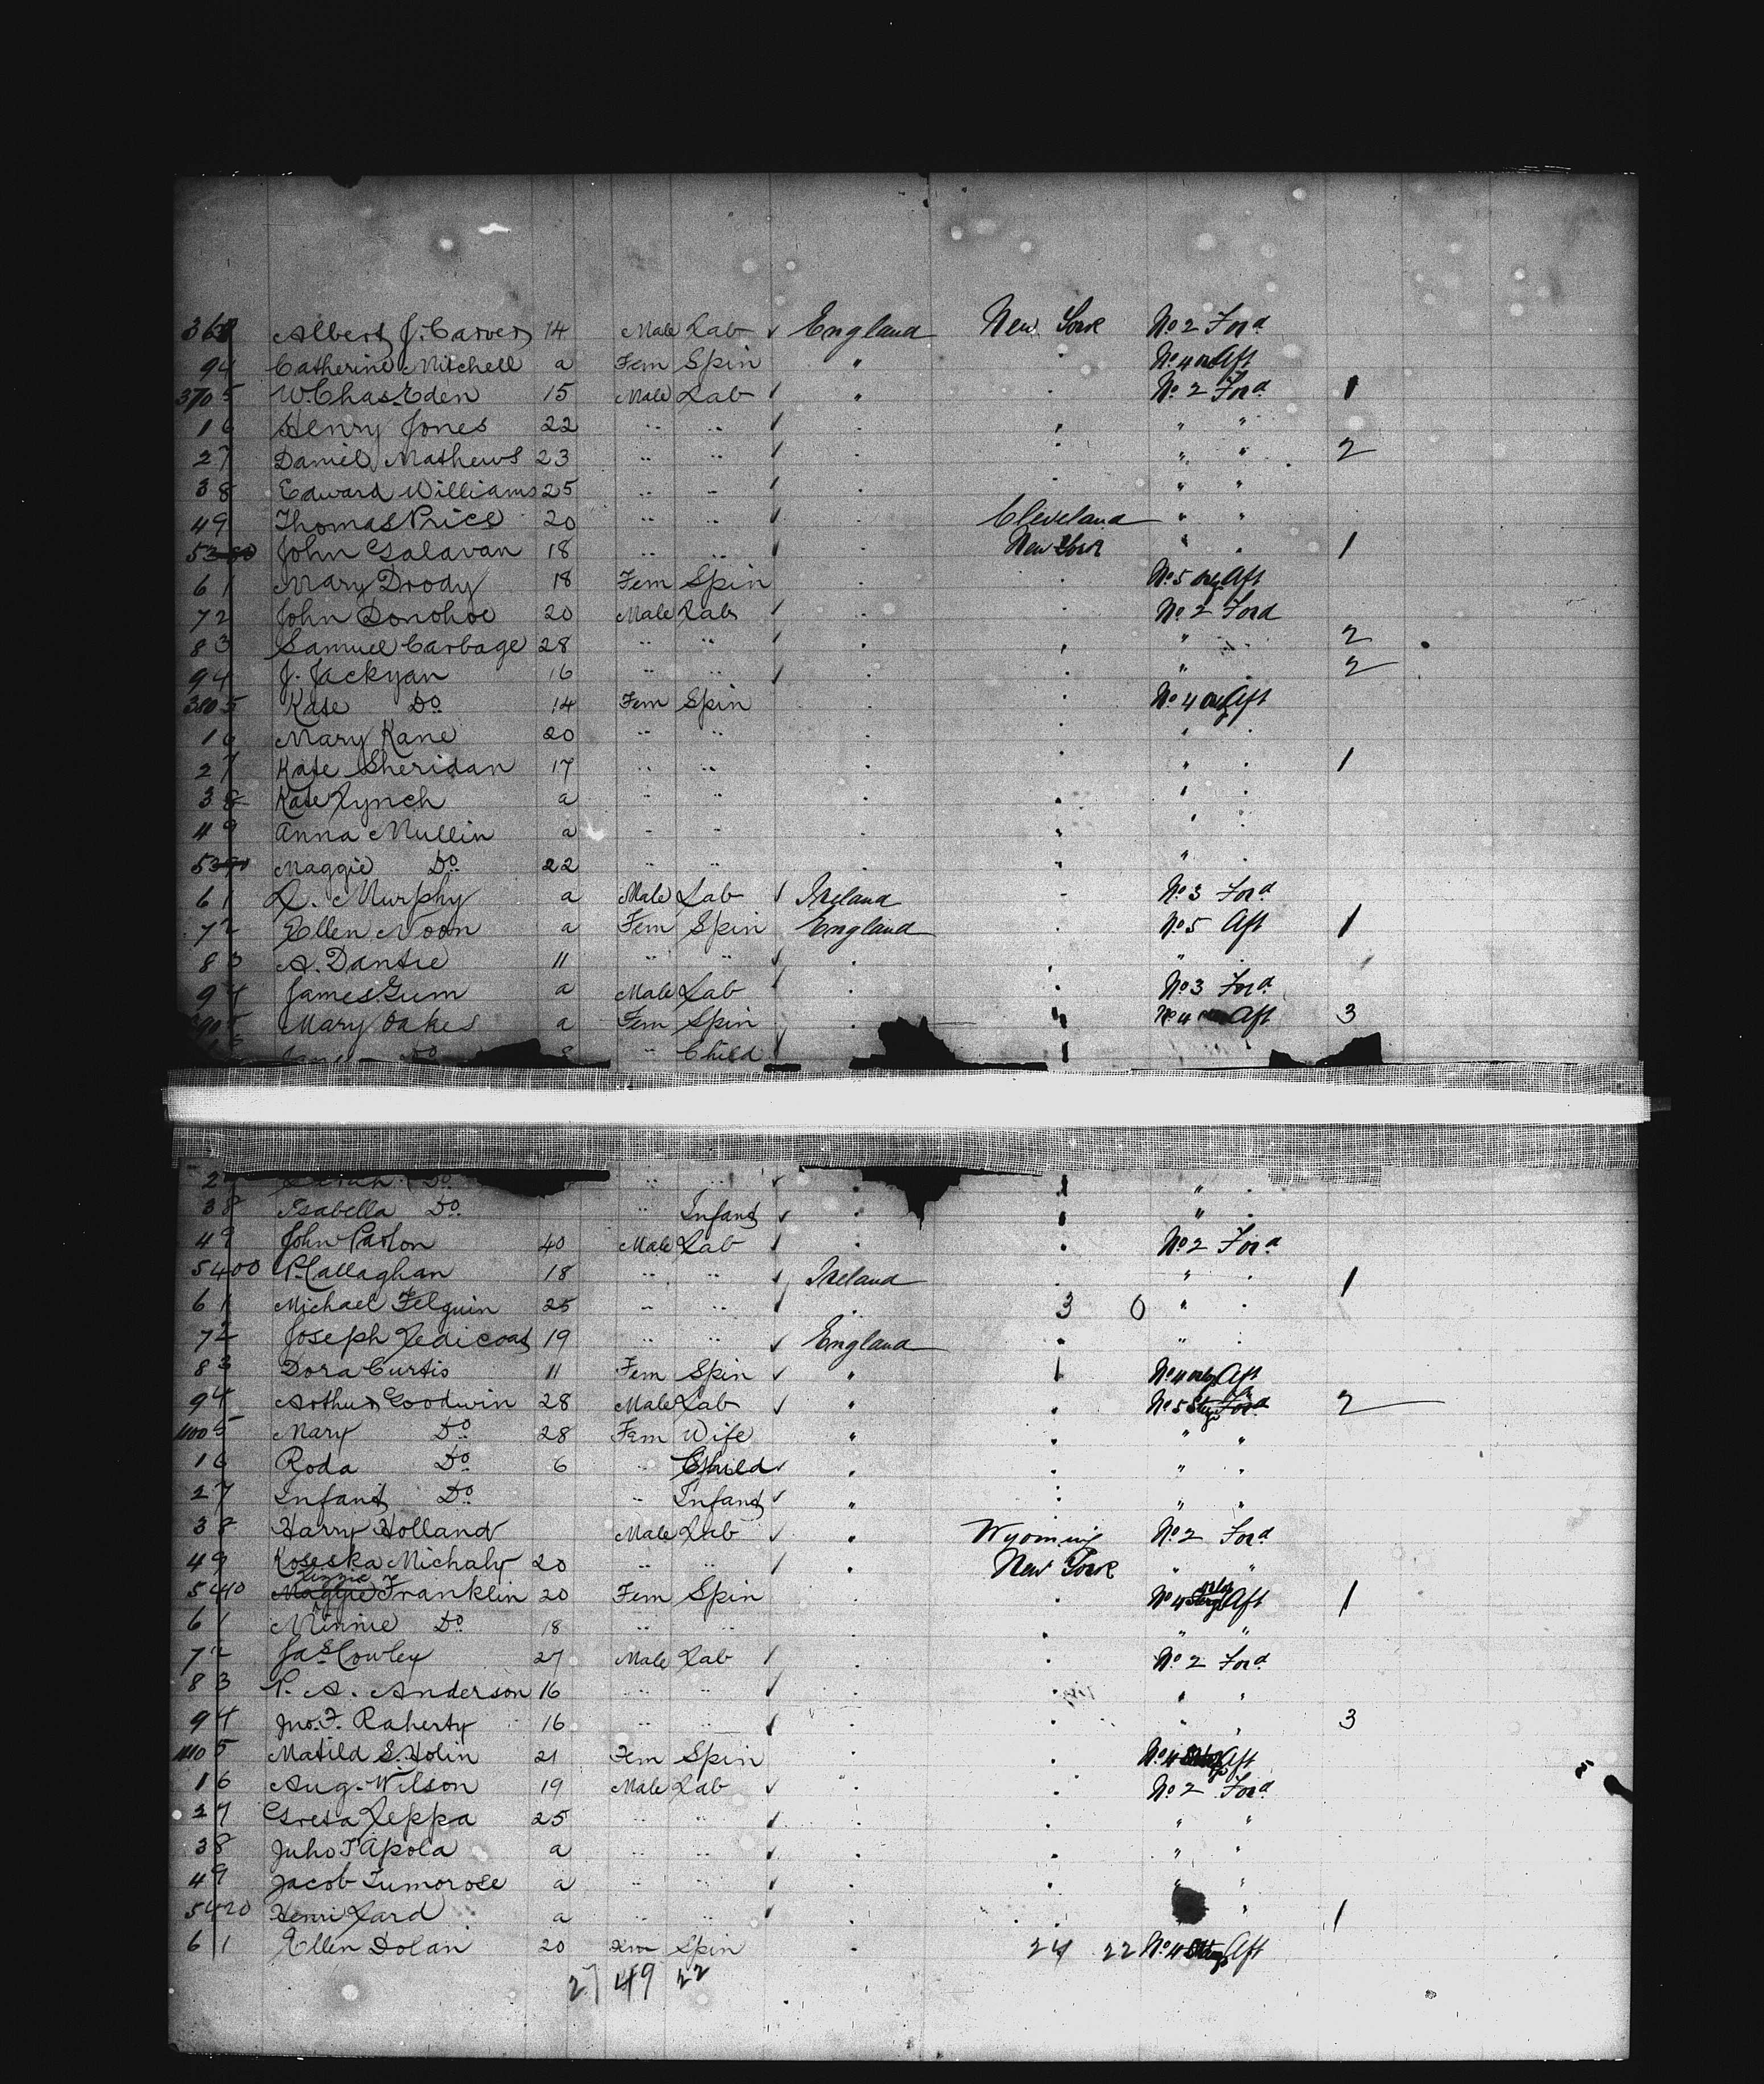 368 Albert J. Carver 14 Male Lab ✓ England New York No 2 Ford
94 Catherine Mitchell a Fem Spin " " No 4 Aft
370 5 W. Chas. Eden 15 Male Lab ✓ " " No 2 Ford 1
1 6 Henry Jones 22 " " ✓ " " " "
2 7 Daniel Mathews 23 " " ✓ " " " " 2
3 8 Edward Williams 25 " " ✓ " " " "
4 9 Thomas Price 20 " " ✓ " Cleveland " "
5 380 John Galavan 18 " " ✓ " New York " " 1
6 1 Mary Droody 18 Fem Spin " " No 5 Aft
7 2 John Donohoe 20 Male Lab ✓ " " No 2 Ford
8 3 Samuel Carbage 28 " " ✓ " " " " 2
9 4 J. Jackyan 16 " " ✓ " " " " 2
380 5 Kate Do 14 Fem Spin " " No 4 Aft
1 6 Mary Kane 20 " " " " " "
2 7 Kate Sheridan 17 " " " " " " 1
3 8 Kate Lynch a " " " " " "
4 9 Anna Mullin a " " " " " "
5 390 Maggie Do 22 " " " " " "
6 1 L. Murphy a Male Lab ✓ Ireland " No 3 Ford
7 2 Ellen Noon a Fem Spin England " No 5 Aft 1
8 3 A. Dantie 11 " " ✓ " " "
9 4 James Gum a Male Lab ✓ " " No 3 Ford
390 5 Mary Oakes a Fem Spin " " No 4 Aft 3
Do " Child ✓
2 Do " " ✓ " " " "
3 8 Isabella Do " Infant ✓ " " " "
4 9 John Parlon 40 Male Lab ✓ " " No 2 Ford
5 400 P. Callaghan 18 " " ✓ Ireland " " " 1
6 1 Michael Felguin 25 " " ✓ " 3 0 " "
7 2 Joseph Ledicoat 19 " " ✓ England " " "
8 3 Dora Curtis 11 Fem Spin ✓ " No 4 Aft
9 4 Arthur Goodwin 28 Male Lab ✓ " " No 5 2
400 5 Mary Do 28 Fem Wife " " " "
1 6 Roda Do 6 " Child ✓ " " " "
2 7 Infant Do " Infant ✓ " " " "
3 8 Harry Holland Male Lab ✓ " Wyoming No 2 Ford
4 9 Koseska Michaly 20 " " ✓ " New York " "
5 410 Lizzie Franklin 20 Fem Spin " " No 4 Aft 1
6 1 Minnie Do 18 " " " " " "
7 2 Jas. Cowley 27 Male Lab ✓ " " No 2 Ford
8 3 P. A. Anderson 16 " " ✓ " " " "
9 4 Jno. F. Raherty 16 " " ✓ " " " " 3
410 5 Matild S. Holin 21 Fem Spin " " No 4 Aft
1 6 Aug. Wilson 19 Male Lab ✓ " " No 2 Ford
2 7 Gresa Leppa 25 " " ✓ " " " "
3 8 Juho Tapola a " " ✓ " " " "
4 9 Jacob Tumorose a " " ✓ " " " "
5 420 Henri Lard a " " ✓ " " " 1
6 1 Ellen Dolan 20 Fem Spin " 24 22 No 4 Aft
27 49 22